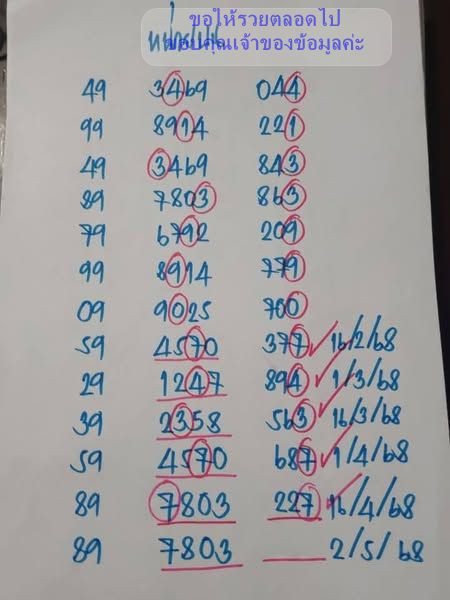 ขอให้รวยตลอดไป
ขอบคุณเจ้าของข้อมูลค่ะ
หน่วยบน
49 3469 044
99 8914 221
49 3469 843
89 7803 863
79 6792 209
99 8914 779
09 9025 700
59 4570 377 16/2/68
29 1247 894 1/3/68
39 2358 563 16/3/68
59 4570 687 1/4/68
89 7803 227 16/4/68
89 7803 2/5/68